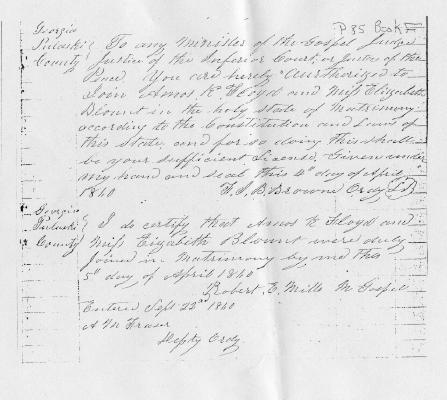 P 85 Book F
Georgia
Pulaski
County
To any Minister of the Gospel Judge
Justice of the Inferior Court, or Justice of the
Peace You are hereby Authorized to
Join Amos K Floyd and Miss Elizabeth
Blount in the holy state of Matrimony
according to the Constitution and Laws of
this State, and for so doing this shall
be your sufficient License, Given under
my hand and seal this 4th day of April
1860
B. Browne Ordy L.S.
Georgia
Pulaski
County
I do certify that Amos K Floyd and
Miss Elizabeth Blount were duly
Joined in Matrimony by me this
5th day of April 1860
Robert E. Mills M Gospel
Entered Sept 22nd 1860
A M Frazer
Depty Ordy